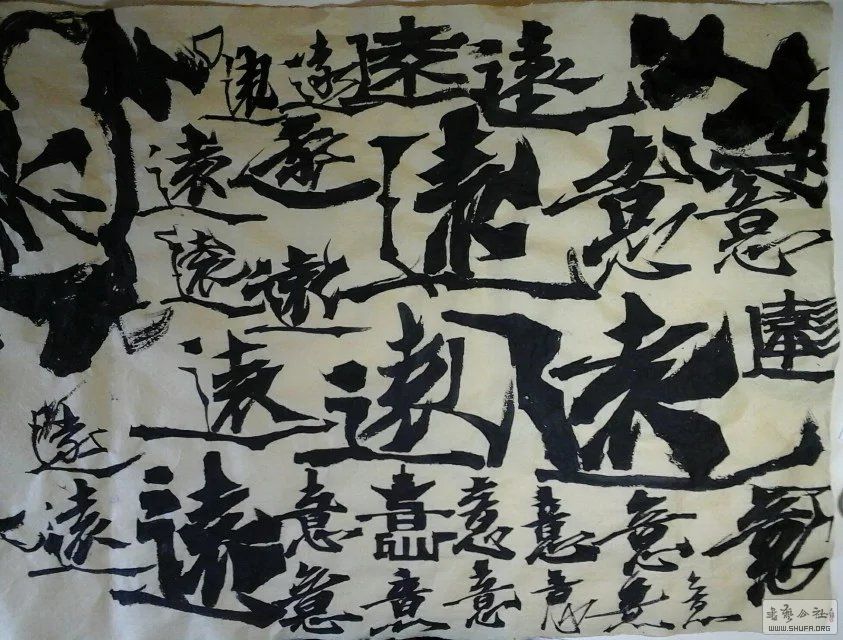 遠 遠 遠 遠
遠 遠 遠 意 意
遠 遠
遠 遠 遠 遠
遠
遠 遠 意 意 意 意 意 意
意 意 意 意 意 意
書藝公社
WWW.SHUFA.ORG